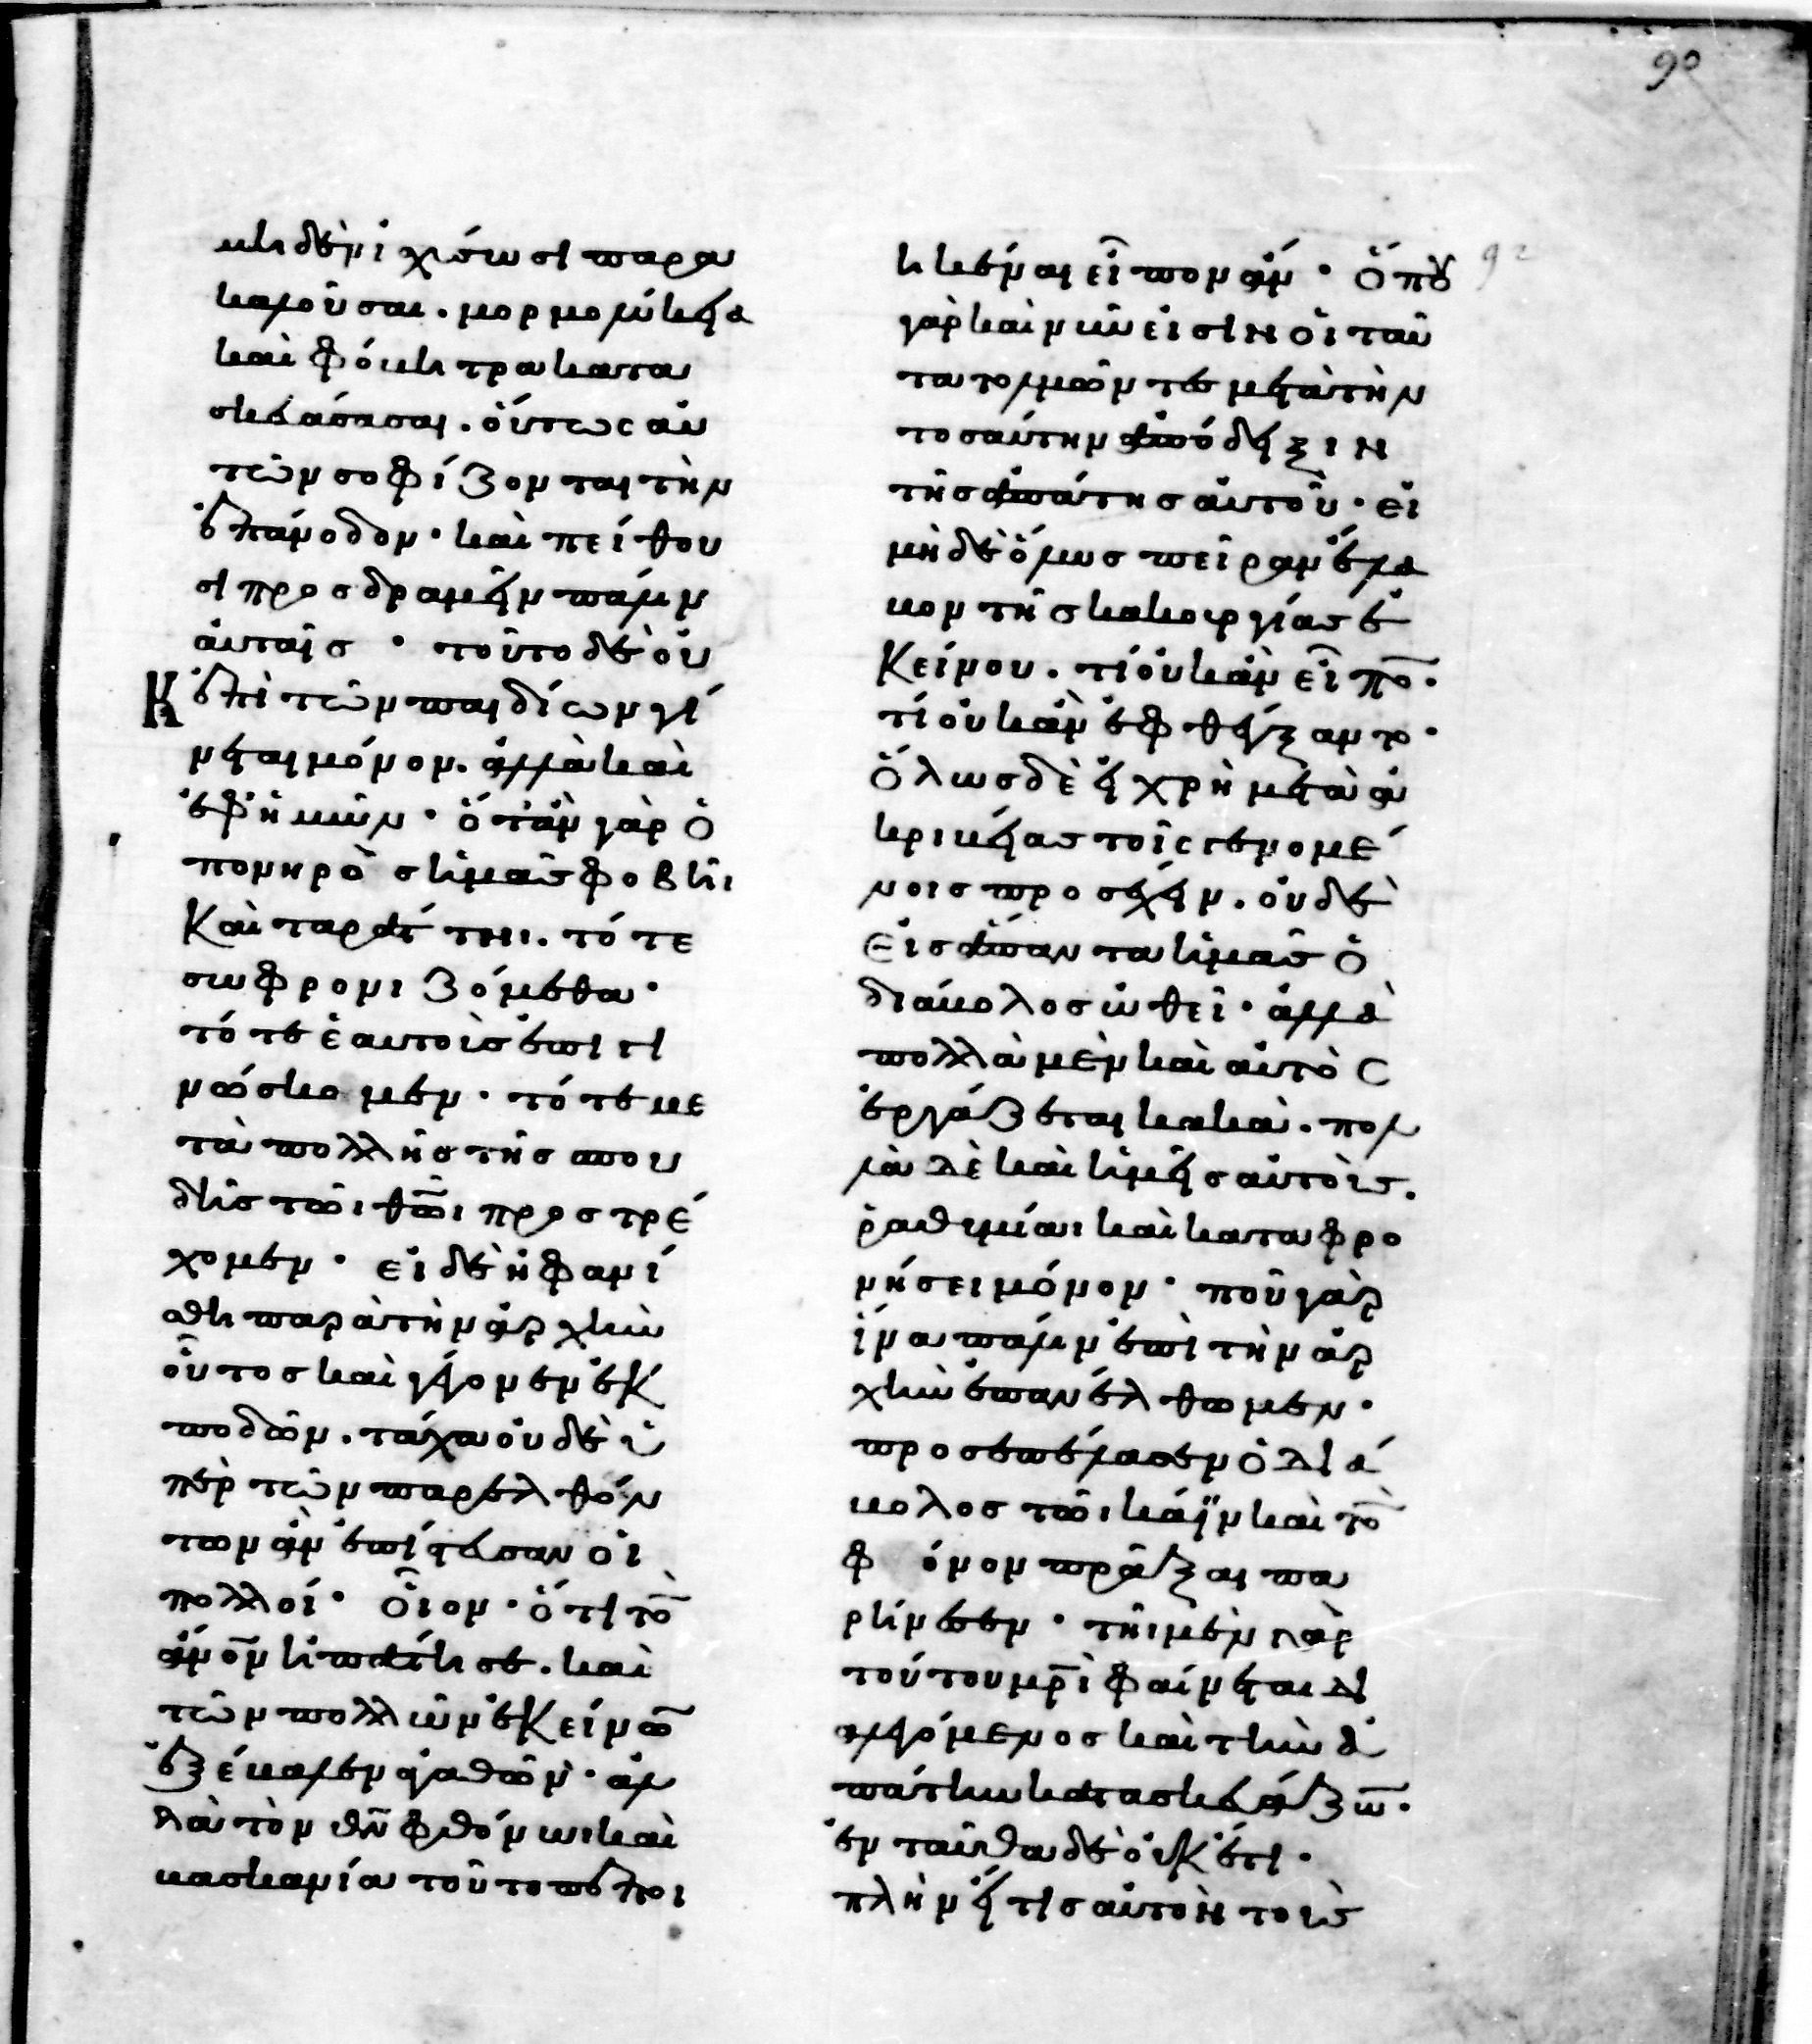 90
μηδὲν ἰσχύσωσι παρα
καλοῦσαι. μορμολύκεια
καὶ φόβητρα κατα
σκευάσασαι. οὕτως αὐ
τῶν σοφίζονται τὴν
ἐπάνοδον· καὶ πείθου
σι προσδραμεῖν πάλιν
αὐταῖς · τοῦτο δὲ οὐ
κ ἐπὶ τῶν παιδίων γί
νεται μόνον. ἀλλὰ καὶ
ἐφ ἡμῶν · ὅταν γὰρ ὁ
πονηρὸς ἡμᾶς φοβῆι
καὶ ταράττηι. τότε
σωφρονιζόμεθα·
τότε ἑαυτοὺς ἐπιγι
νώσκομεν · τότε με
τὰ πολλῆς τῆς σπου
δῆς τῶι θω̅ι προστρέ
χομεν · εἰ δὲ ἠφανί
σθη παρὰ τὴν ἀρχὴν
οὗτος καὶ γέγονεν ἐκ
ποδῶν. τάχα οὐδὲ ὑ
πὲρ τῶν παρελθόν
των ἂν ἐπίστευσαν οἱ
πολλοί · οἷον · ὅτι το̅
ἄνο̅ν ἠπάτησε. καὶ
τῶν πολλῶν ἐκείνω̅
ἐξέβαλεν ἀγαθῶν · ἀλ
λὰ τὸν θν̅ φθόνωι καὶ
βασκανία τοῦτο πεποι
ηκέναι εἶπον ἄν · ὅπου 92
γὰρ καὶ νῦν εἰσὶν οἱ ταῦ
τα τολμῶντες μετὰ τὴν
τοσαύτην ἀπόδειξιν
τῆς ἀπάτης αὐτοῦ · εἰ
μὴ δὲ ὅλως πεῖραν ἔλα
βον τῆς κακουργίας ἐ
κείνου. τί οὐκ ἂν εἶπο̅.
τί οὐκ ἂν ἐφθέγξαντο·
ὅλως δὲ εἰ χρὴ μετὰ ἀ
κριβείας τοῖς γενομέ
νοις προσέχειν. οὐδὲ
εἰς ἅπαντα ἡμᾶς ὁ
διάβολος ὠθεῖ · ἀλλὰ
πολλὰ μὲν καὶ αὐτὸς
ἐργάζεται κακὰ. πολ
λὰ δὲ καὶ ἡμεῖς αὐτοῖς.
ῥαθυμίαι καὶ καταφρο
νήσει μόνον · ποῦ γὰρ
ἵνα πάλιν ἐπὶ τὴν ἀρ
χὴν ἐπανέλθωμεν·
προσεπέλασεν ὁ διά
βολος τῶι κάϊν καὶ το̅
φόνον πρᾶξαι πα
ρήνεσεν · τῆι μὲν γὰρ
τούτου μρ̅ὶ φαίνεται δι
αλεγόμενος καὶ τὴν ἀ
πάτην κατασκευάζω̅.
ἐνταῦθα δὲ οὐκέτι·
πλὴν εἴ τις αὐτὸν τοῖς